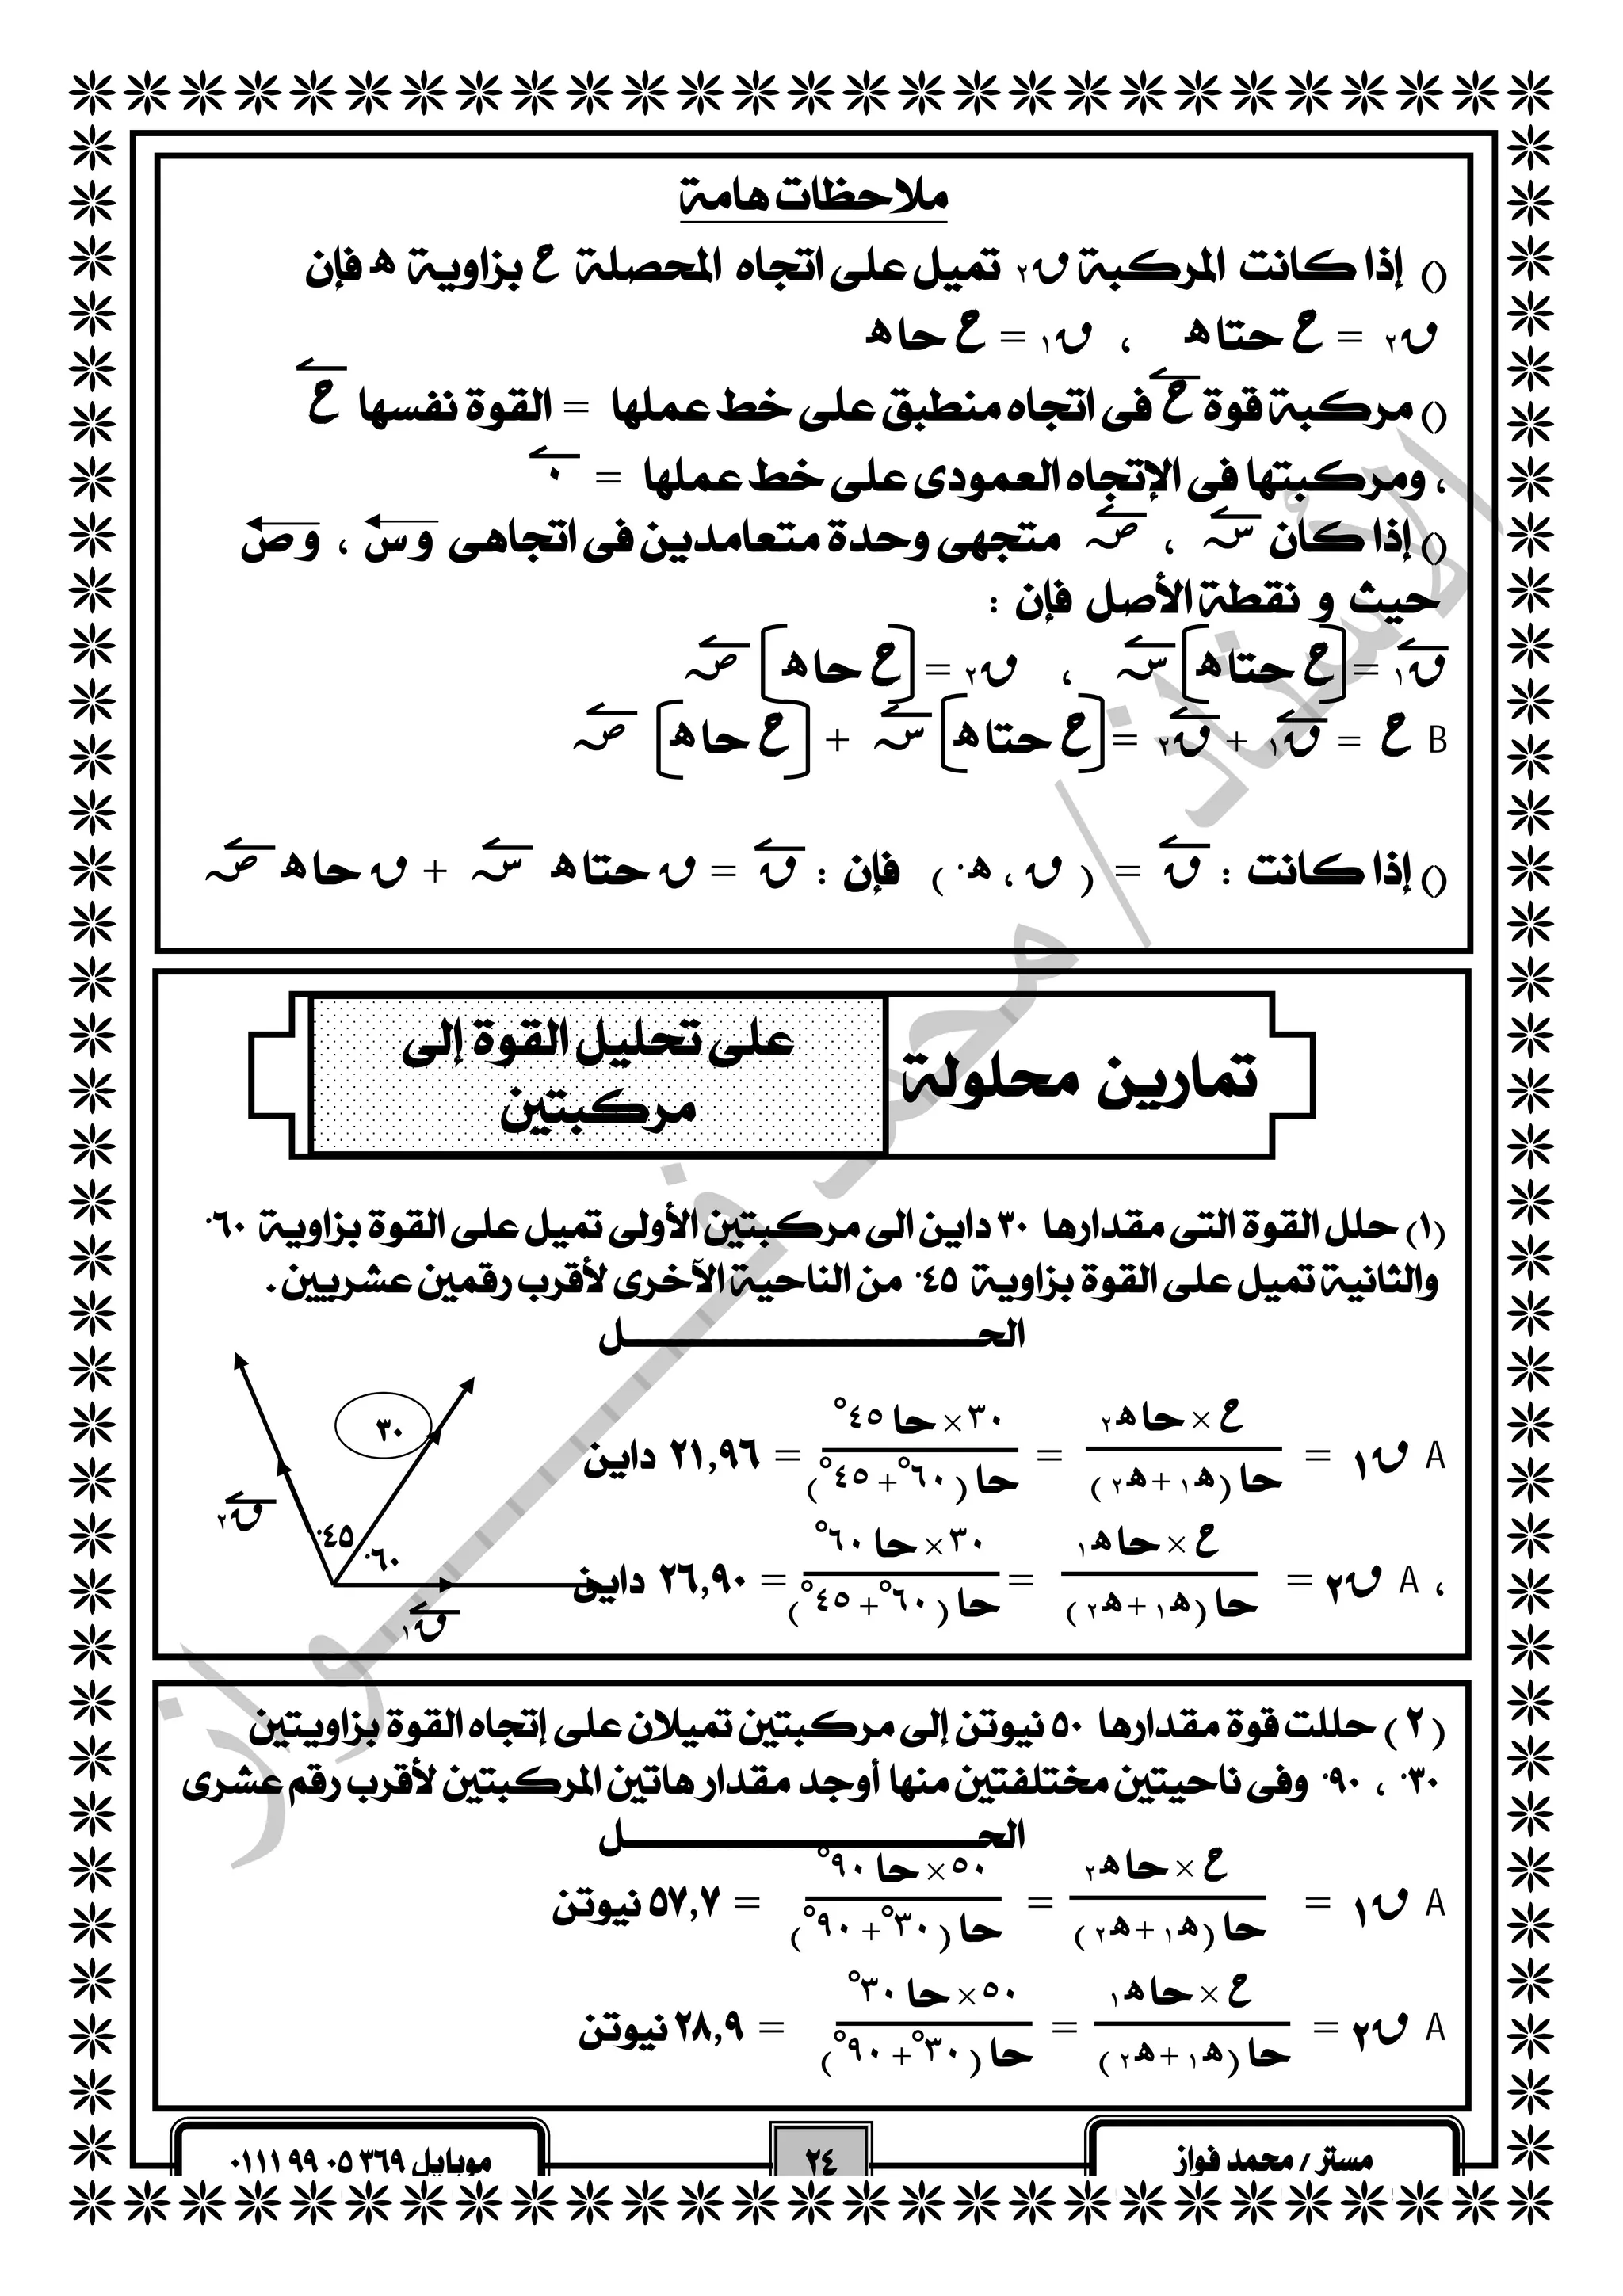 ملاحظات هامة
() إذا كانت المركبة ق٢ تميل على اتجاه المحصلة ح بزاوية ه فإن
ق٢ = ح حتا ه ، ق١ = ح حا ه
() مركبة قوة ح فى اتجاه منطبق على خط عملها = القوة نفسها ح
، ومركبتها فى الإتجاه العمودى على خط عملها = ٠
() إذا كان س ، ص متجهى وحدة متعامدين فى اتجاهى و س ، و ص
حيث و نقطة الأصل فإن :
ق١ = [ح حتا ه] س ، ق٢ = [ح حا ه] ص
B ح = ق١ + ق٢ = [ح حتا ه] س + [ح حا ه] ص
() إذا كانت : ق = ( ق ، ه° ) فإن : ق = ق حتا ه س + ق حا ه ص
تمارين محلولة
على تحليل القوة إلى
مركبتين
(١) حلل القوة التى مقدارها ٣٠ داين الى مركبتين الأولى تميل على القوة بزاوية ٦٠°
والثانية تميل على القوة بزاوية ٤٥° من الناحية الآخرى لأقرب رقمين عشريين .
الحـــــــــــــــل
A ق١ = ح × حا ه٢ / حا (ه١ + ه٢) = ٣٠ × حا ٤٥° / حا (٦٠° + ٤٥°) = ٢١,٩٦ داين
، A ق٢ = ح × حا ه١ / حا (ه١ + ه٢) = ٣٠ × حا ٦٠° / حا (٦٠° + ٤٥°) = ٢٦,٩٠ داين
٣٠
ق٢
٤٥°
٦٠°
ق١
(٢) حللت قوة مقدارها ٥٠ نيوتن إلى مركبتين تميلان على إتجاه القوة بزاويتين
٣٠° ، ٩٠° وفى ناحيتين مختلفتين منها أوجد مقدار هاتين المركبتين لأقرب رقم عشرى
الحـــــــــــــــل
A ق١ = ح × حا ه٢ / حا (ه١ + ه٢) = ٥٠ × حا ٩٠° / حا (٣٠° + ٩٠°) = ٥٧,٧ نيوتن
A ق٢ = ح × حا ه١ / حا (ه١ + ه٢) = ٥٠ × حا ٣٠° / حا (٣٠° + ٩٠°) = ٢٨,٩ نيوتن
مستر / محمد فواز
٢٤
موبايل ٣٦٩ ٠٥ ٩٩ ٠١١١
الأستاذ / محمد فــــواز